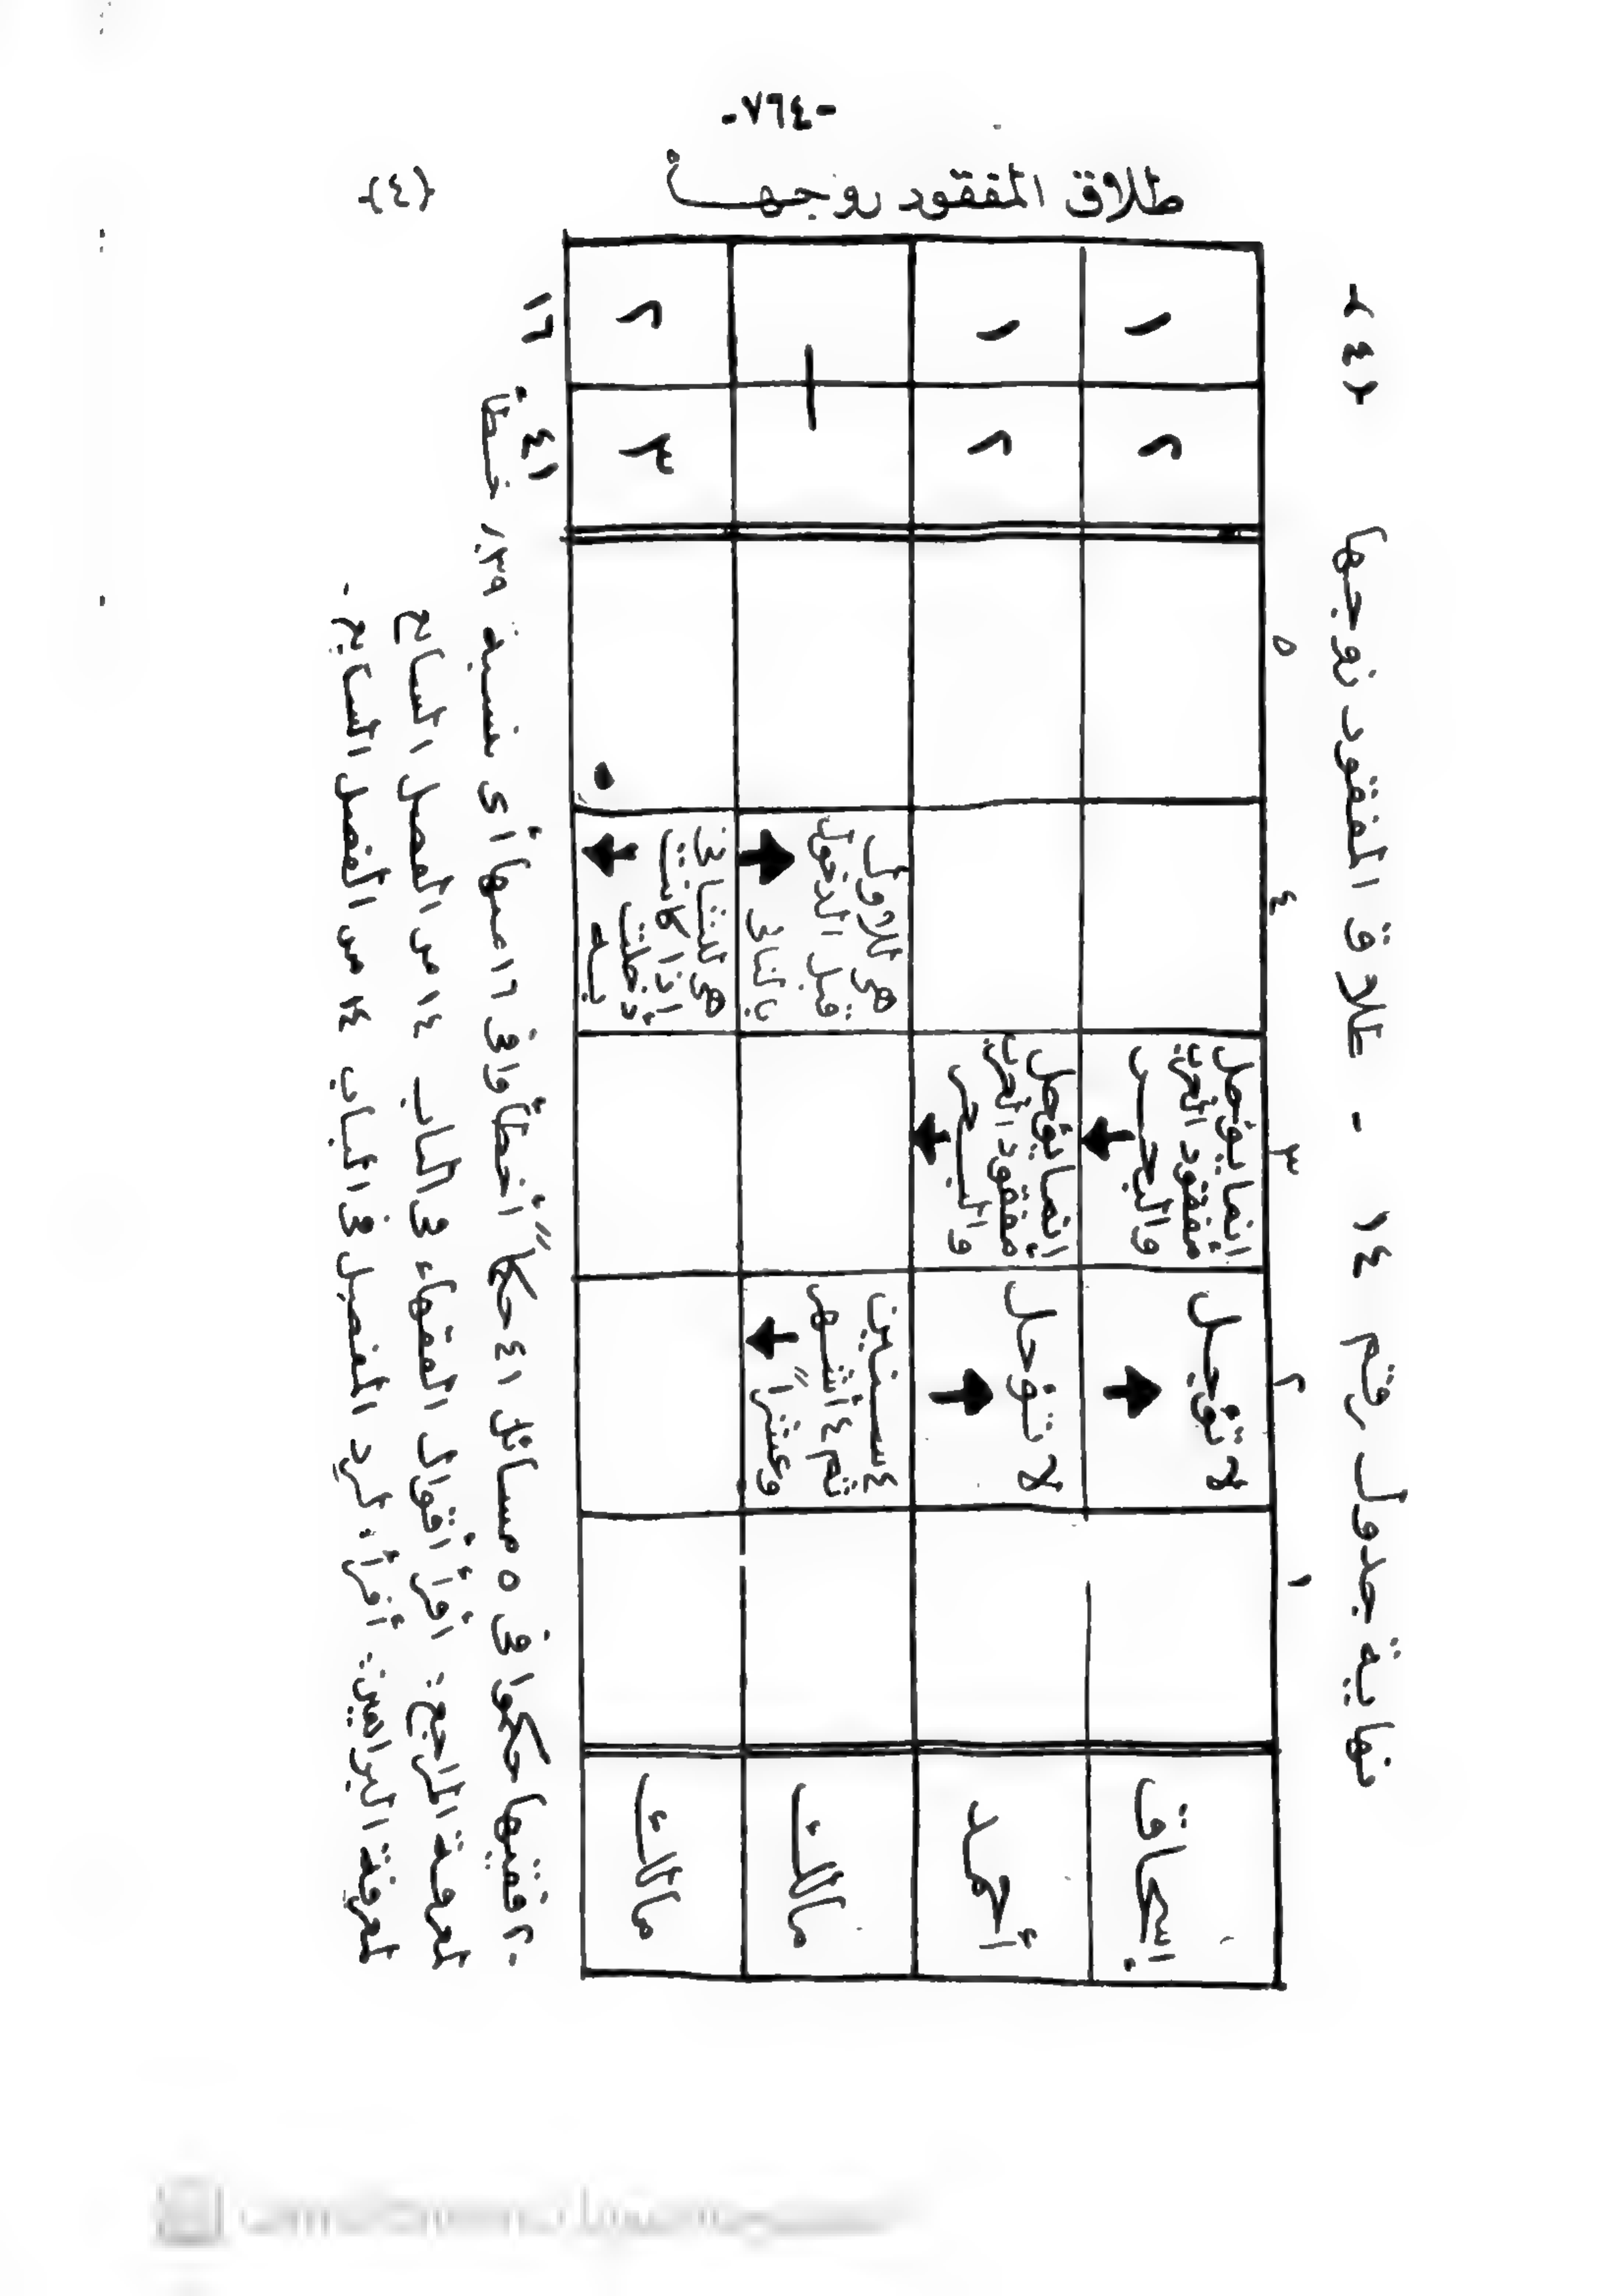 -٤٦٧-
طلاق المفقود زوجها {٤}
نهاية جدول رقم ١٤ - طلاق المفقود زوجها {٤}
١ ٢ ٣ ٤ ٥
إسحاق
لا تؤجل
انما يؤجل
مفقود الحرب
والبحر
٢ ١
أحمد
لا تؤجل
انما يؤجل
مفقود الحرب
والبحر
٢ ١
مالك
٤ سنين
ثم ٤ أشهر
وعشراً
هي للأول
قبل الدخول
بالثاني
مالك
هي للثاني
اذا كانت
دخلت
به
٣ ٢
٤١ ١٦
٢٠ فقيها حكموا في ٥ مسائل ٤١ حكماً أخطأوا في ١٦ منها أي نسبة ٣٩٪ خطأ
لمعرفة الراجح: اقرأ أقوال الفقهاء في الباب ١٤ من الفصل السابع
لمعرفة البراهين: أقرأ الرد المفصل في الباب ١٤ من الفصل السابع.